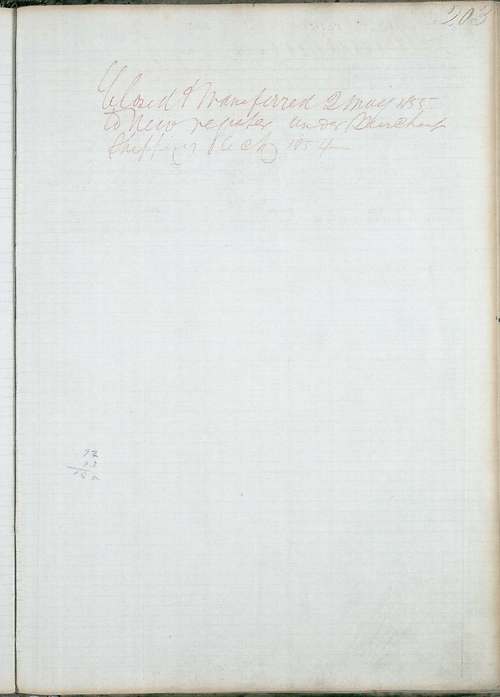 303
Closed & Transferred 2 May 1855
to New register under Merchant
Shipping Act 1854